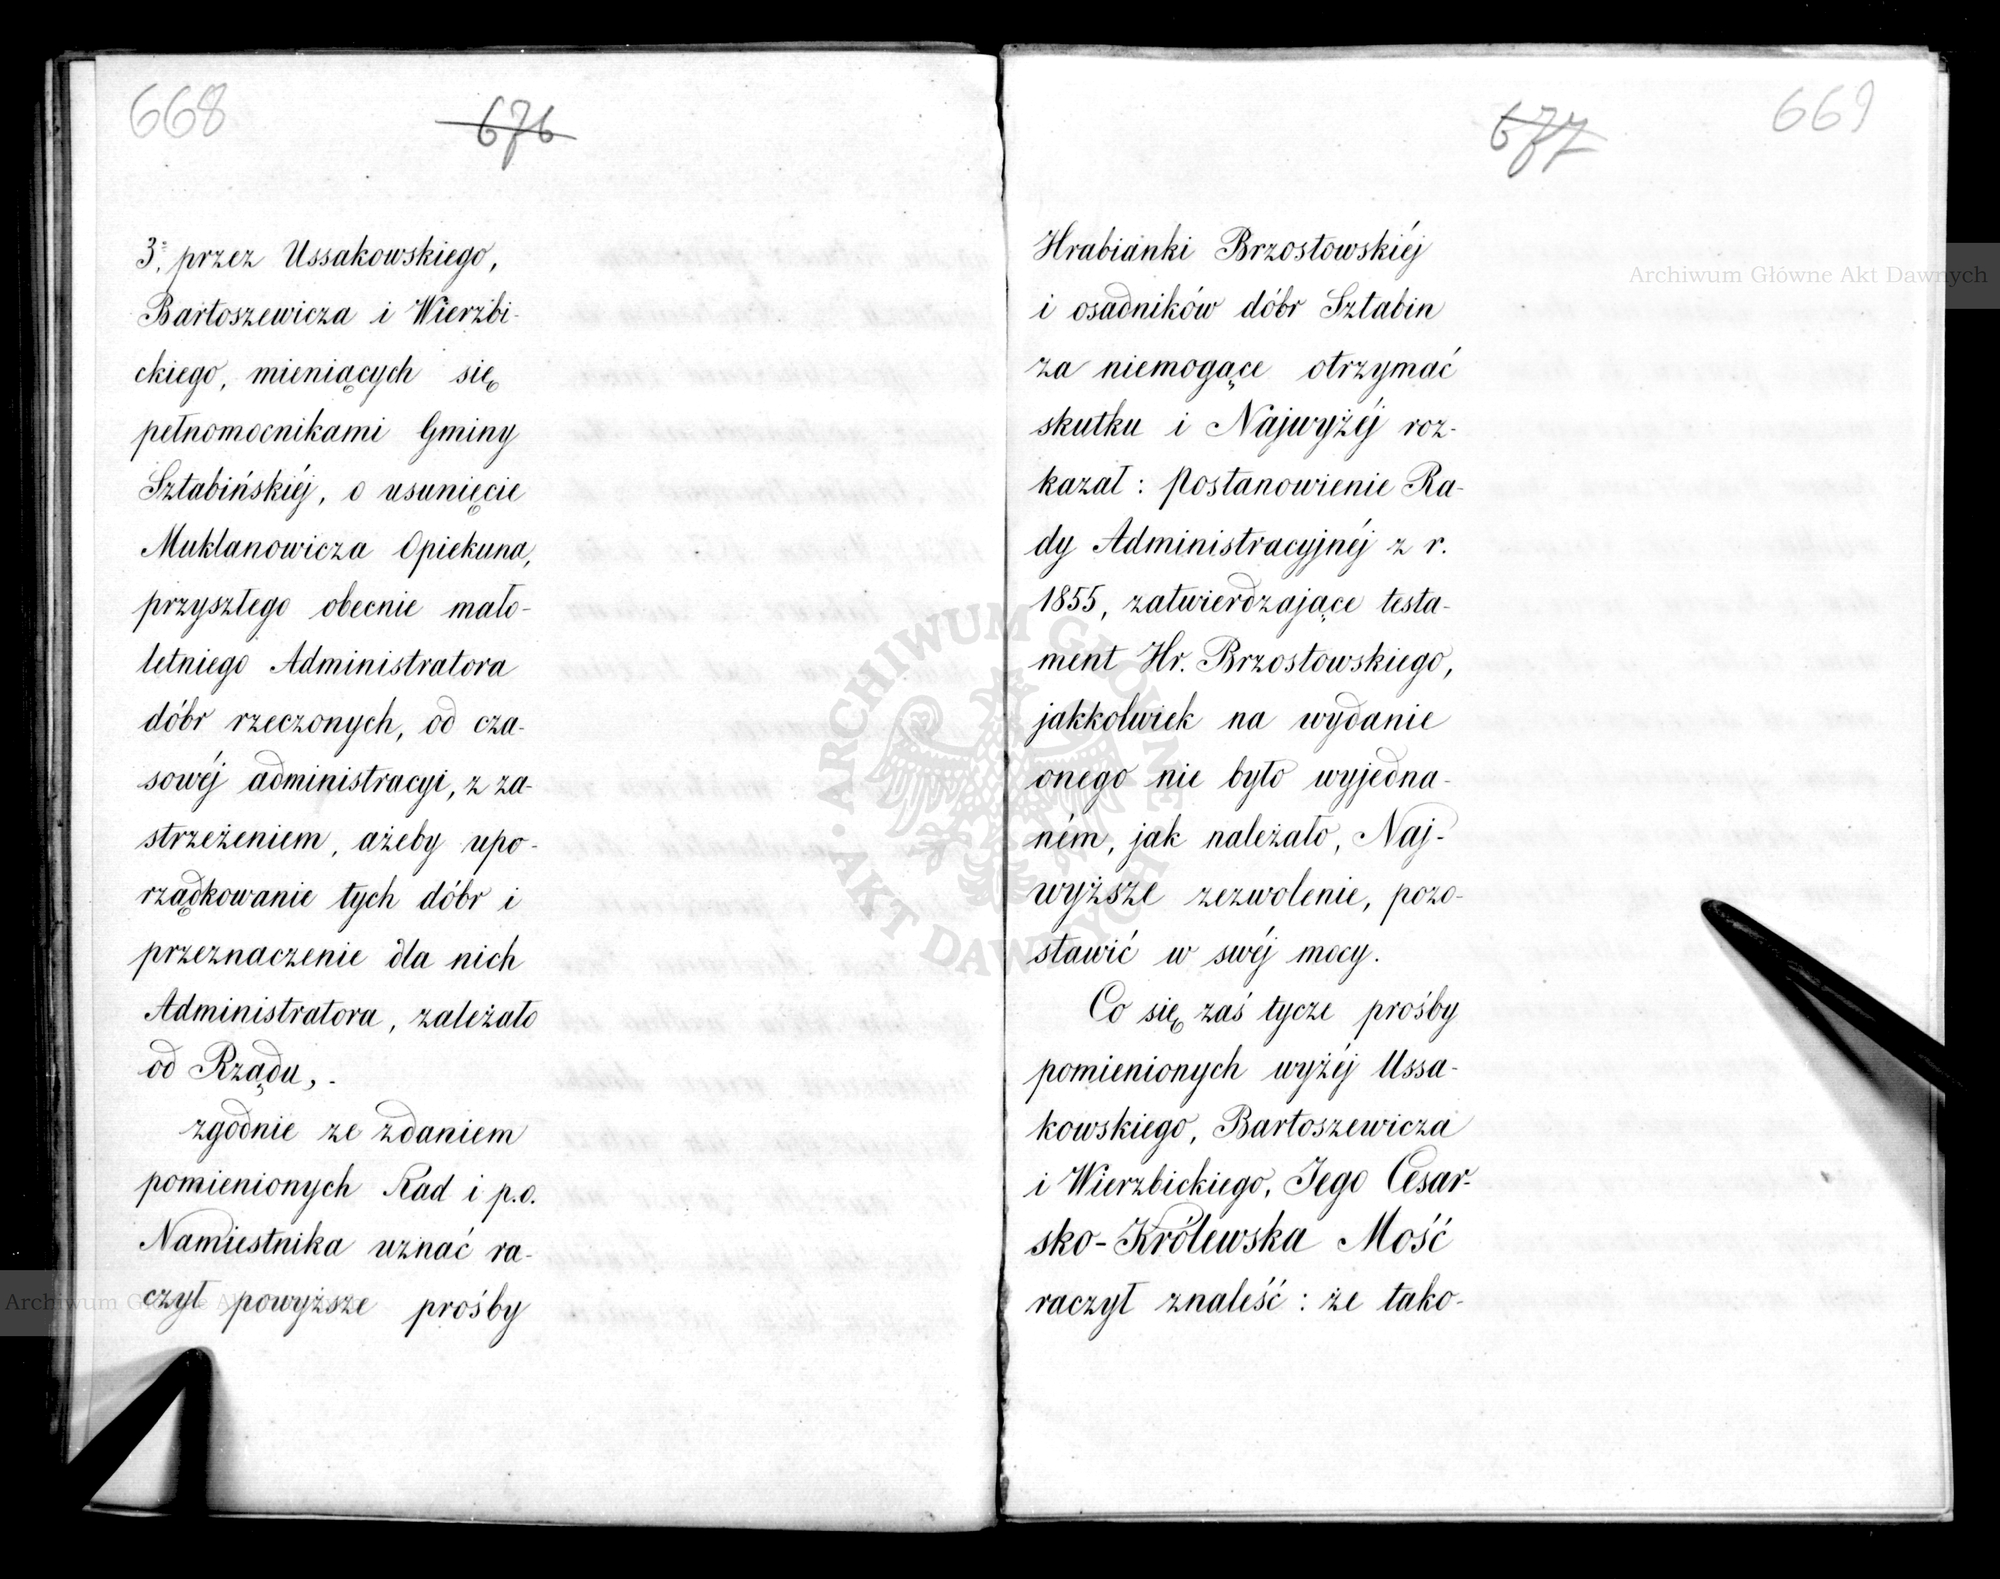 668
676
3º przez Ussakowskiego,
Bartoszewicza i Wierzbi-
ckiego, mieniących się
pełnomocnikami Gminy
Sztabińskiéj, o usunięcie
Muklanowicza Opiekuna,
przyszłego obecnie mało-
letniego Administratora
dóbr rzeczonych, od cza-
sowéj administracyi, z za-
strzeżeniem, ażeby upo-
rządkowanie tych dóbr i
przeznaczenie dla nich
Administratora, zależało
od Rządu,.
zgodnie ze zdaniem
pomienionych Rad i p.o.
Namiestnika uznać ra-
czył powyższe prośby
677
669
Hrabianki Brzostowskiéj
i osadników dóbr Sztabin
za niemogące otrzymać
skutku i Najwyżéj roz-
kazał: Postanowienie Ra-
dy Administracyjnéj z r.
1855, zatwierdzające testa-
ment Hr. Brzostowskiego,
jakkolwiek na wydanie
onego nie było wyjedna-
ném, jak należało, Naj-
wyższe zezwolenie, pozo-
stawić w swéj mocy.
Co się zaś tycze prośby
pomienionych wyżéj Ussa-
kowskiego, Bartoszewicza
i Wierzbickiego, Jego Cesar-
sko-Królewska Mość
raczył znaleść: że tako-
Archiwum Główne Akt Dawnych
ARCHIWUM GŁÓWNE AKT DAWNYCH
Archiwum Główne Akt Dawnych